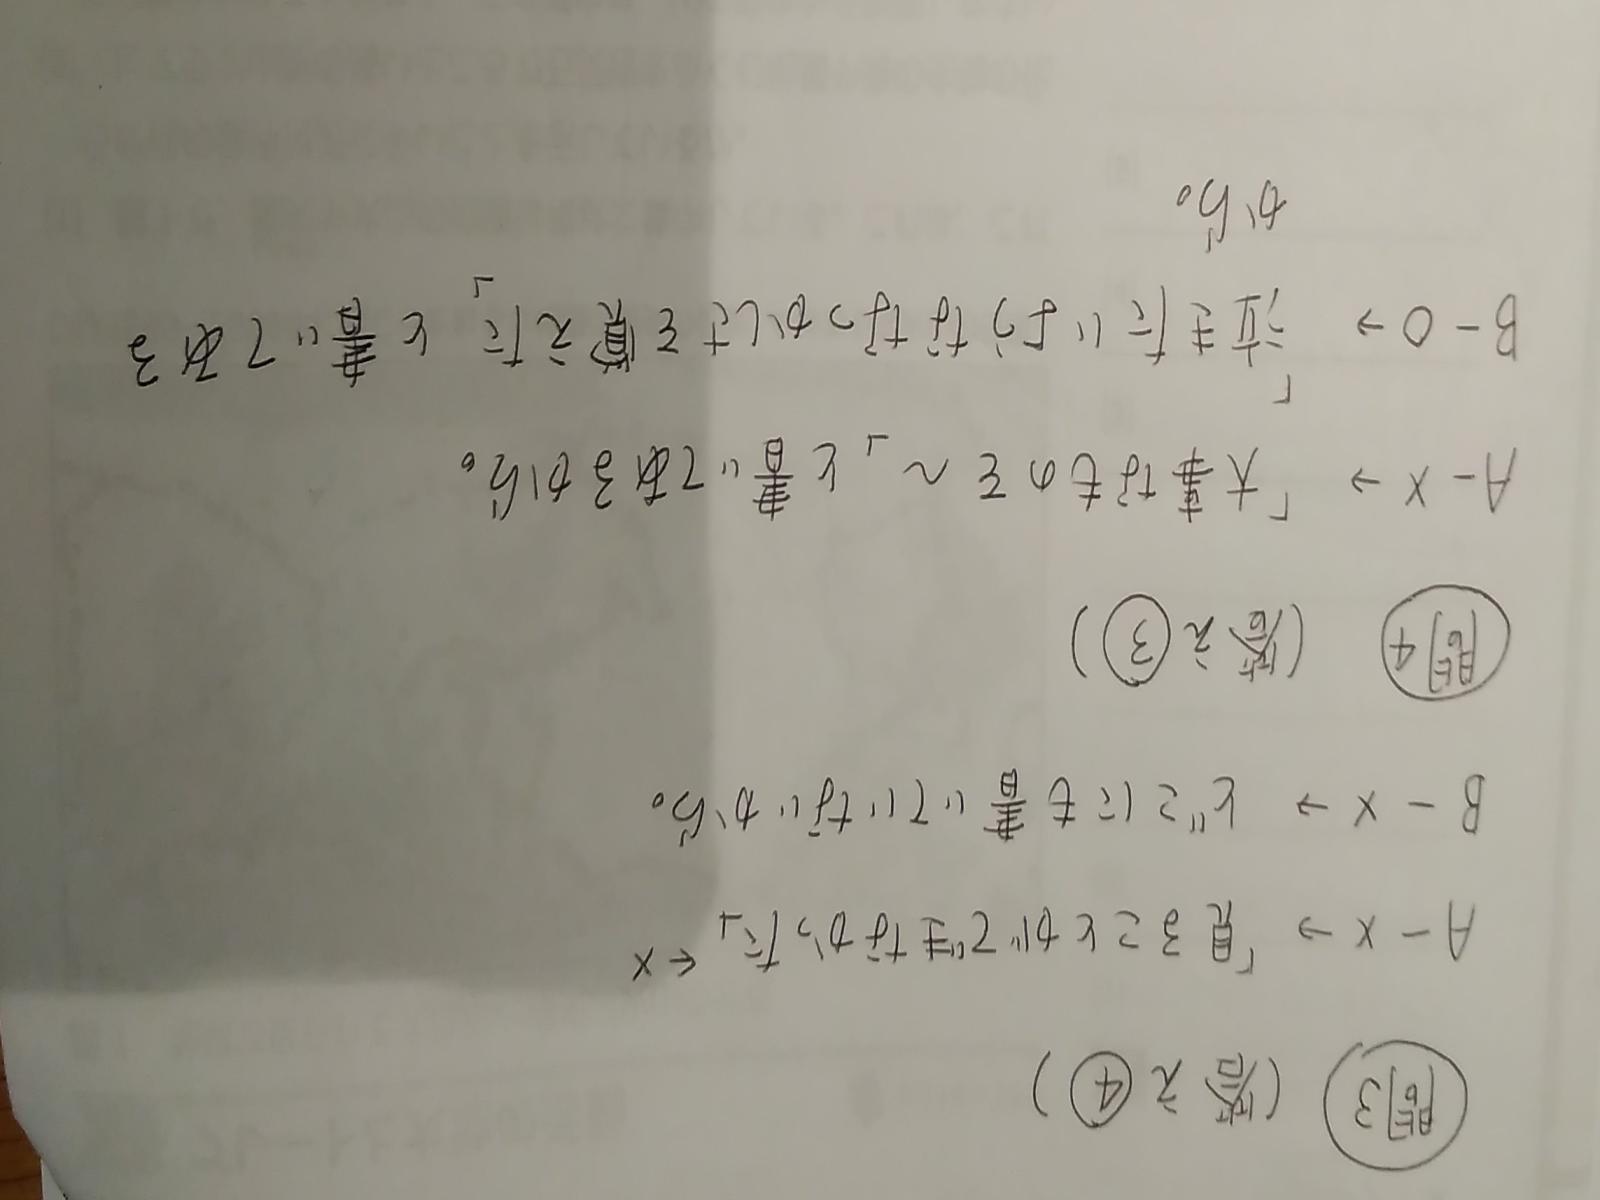 問3 (答え④)
A-×→「見ることができなかった」←×
B-×→どこにも書いていないから。
問4 (答え③)
A-×→「大事なものを~」と書いてあるから。
B-○→「泣きたいようななつかしさを覚えた」と書いてある
から。